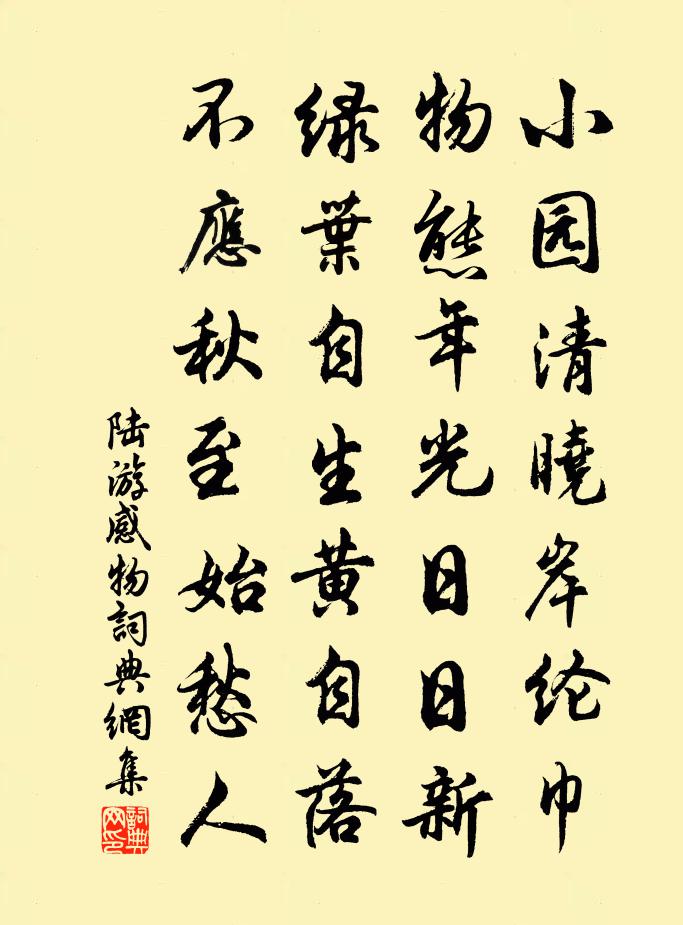 小园清曉岸纶巾
物態年光日日新
绿葉自生黄自落
不應秋至始愁人
陆游感物詞典網集
詞典网印